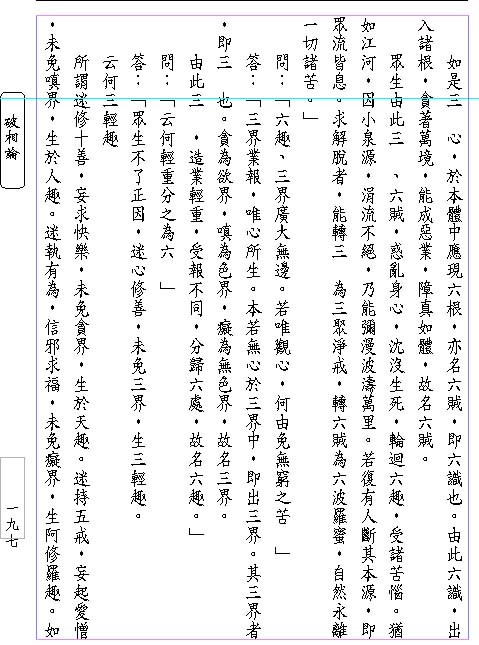 如是三　心，於本體中應現六根，亦名六賊，即六識也。由此六識，出
入諸根，貪著萬境，能成惡業，障真如體，故名六賊。
眾生由此三　、六賊，惑亂身心，沈沒生死，輪迴六趣，受諸苦惱。猶
如江河，因小泉源，涓流不絕，乃能彌漫波濤萬里。若復有人斷其本源，即
眾流皆息。求解脫者，能轉三　為三聚淨戒，轉六賊為六波羅蜜，自然永離
一切諸苦。」
問：「六趣、三界廣大無邊。若唯觀心，何由免無窮之苦　」
答：「三界業報，唯心所生。本若無心於三界中，即出三界。其三界者
，即三　也。貪為欲界，嗔為色界，癡為無色界，故名三界。
由此三　，造業輕重，受報不同，分歸六處，故名六趣。」
問：「云何輕重分之為六　」
答：「眾生不了正因，迷心修善，未免三界，生三輕趣。
云何三輕趣
所謂迷修十善，妄求快樂，未免貪界，生於天趣。迷持五戒，妄起愛憎
，未免嗔界，生於人趣。迷執有為，信邪求福，未免癡界，生阿修羅趣。如
破相論
一九七